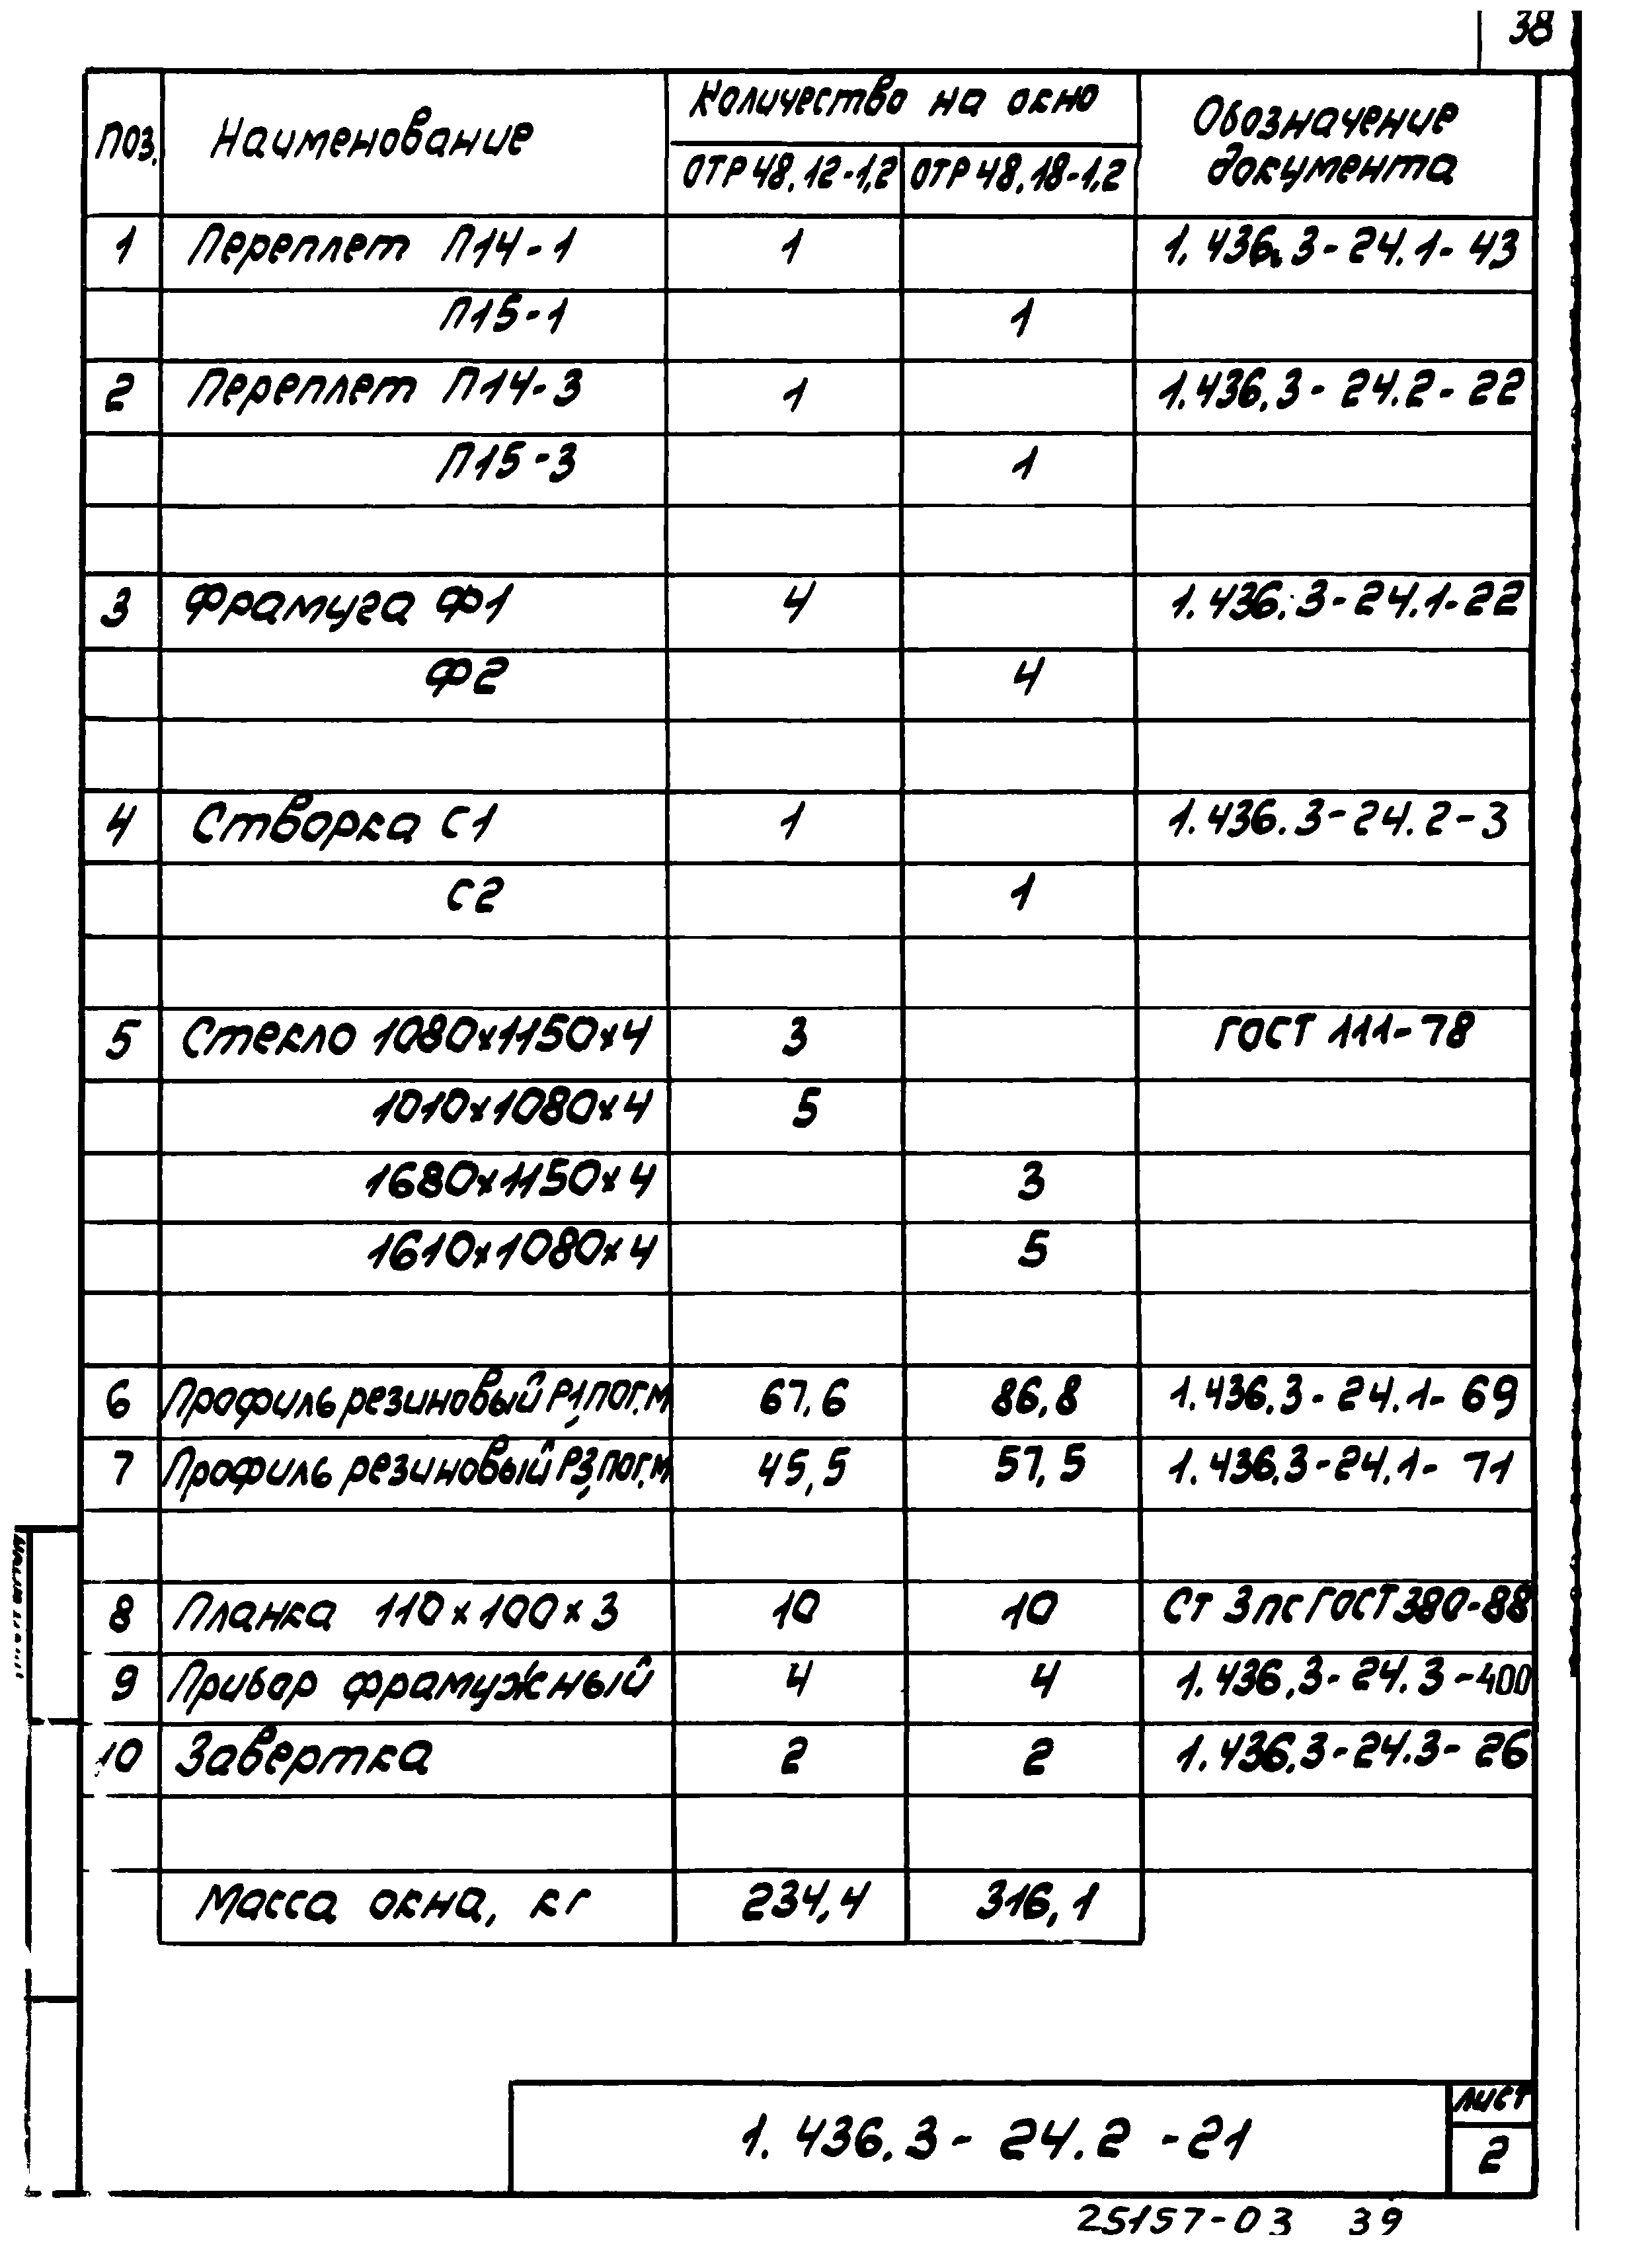 38
Поз. Наименование Количество на окно Обозначение документа
ОТР 48.12-1,2 ОТР 48.18-1,2
1 Переплет П14-1 1 1.436.3-24.1-43
П15-1 1
2 Переплет П14-3 1 1.436.3-24.2-22
П15-3 1
3 Фрамуга Ф1 4 1.436.3-24.1-22
Ф2 4
4 Створка С1 1 1.436.3-24.2-3
С2 1
5 Стекло 1080х1150х4 3 ГОСТ 111-78
1010х1080х4 5
1680х1150х4 3
1610х1080х4 5
6 Профиль резиновый Р1, пог.м 67,6 86,8 1.436.3-24.1-69
7 Профиль резиновый Р3, пог.м 45,5 57,5 1.436.3-24.1-71
8 Планка 110х100х3 10 10 Ст 3пс ГОСТ 380-88
9 Прибор фрамужный 4 4 1.436.3-24.3-400
10 Завертка 2 2 1.436.3-24.3-26
Масса окна, кг 234,4 316,1
1.436.3-24.2-21
Лист
2
25157-03 39